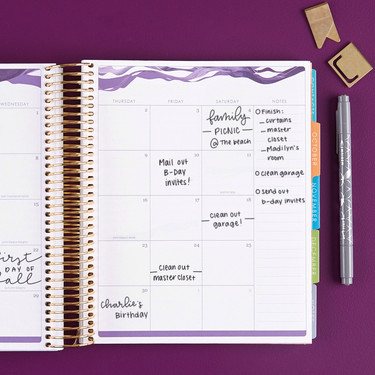 WEDNESDAY THURSDAY FRIDAY SATURDAY NOTES
2 3 4
family
PICNIC
@ The beach
O Finish:
- curtains
- master
closet
- Madilyn's
room
O clean garage
O send out
b-day invites
9 10 11
Mail out
B-Day
invites!
18
Clean out
garage!
First
DAY OF
fall
23 24 25
Clean out
master closet
30
Charlie's
Birthday
OCTOBER
NOVEMBER
DECEMBER